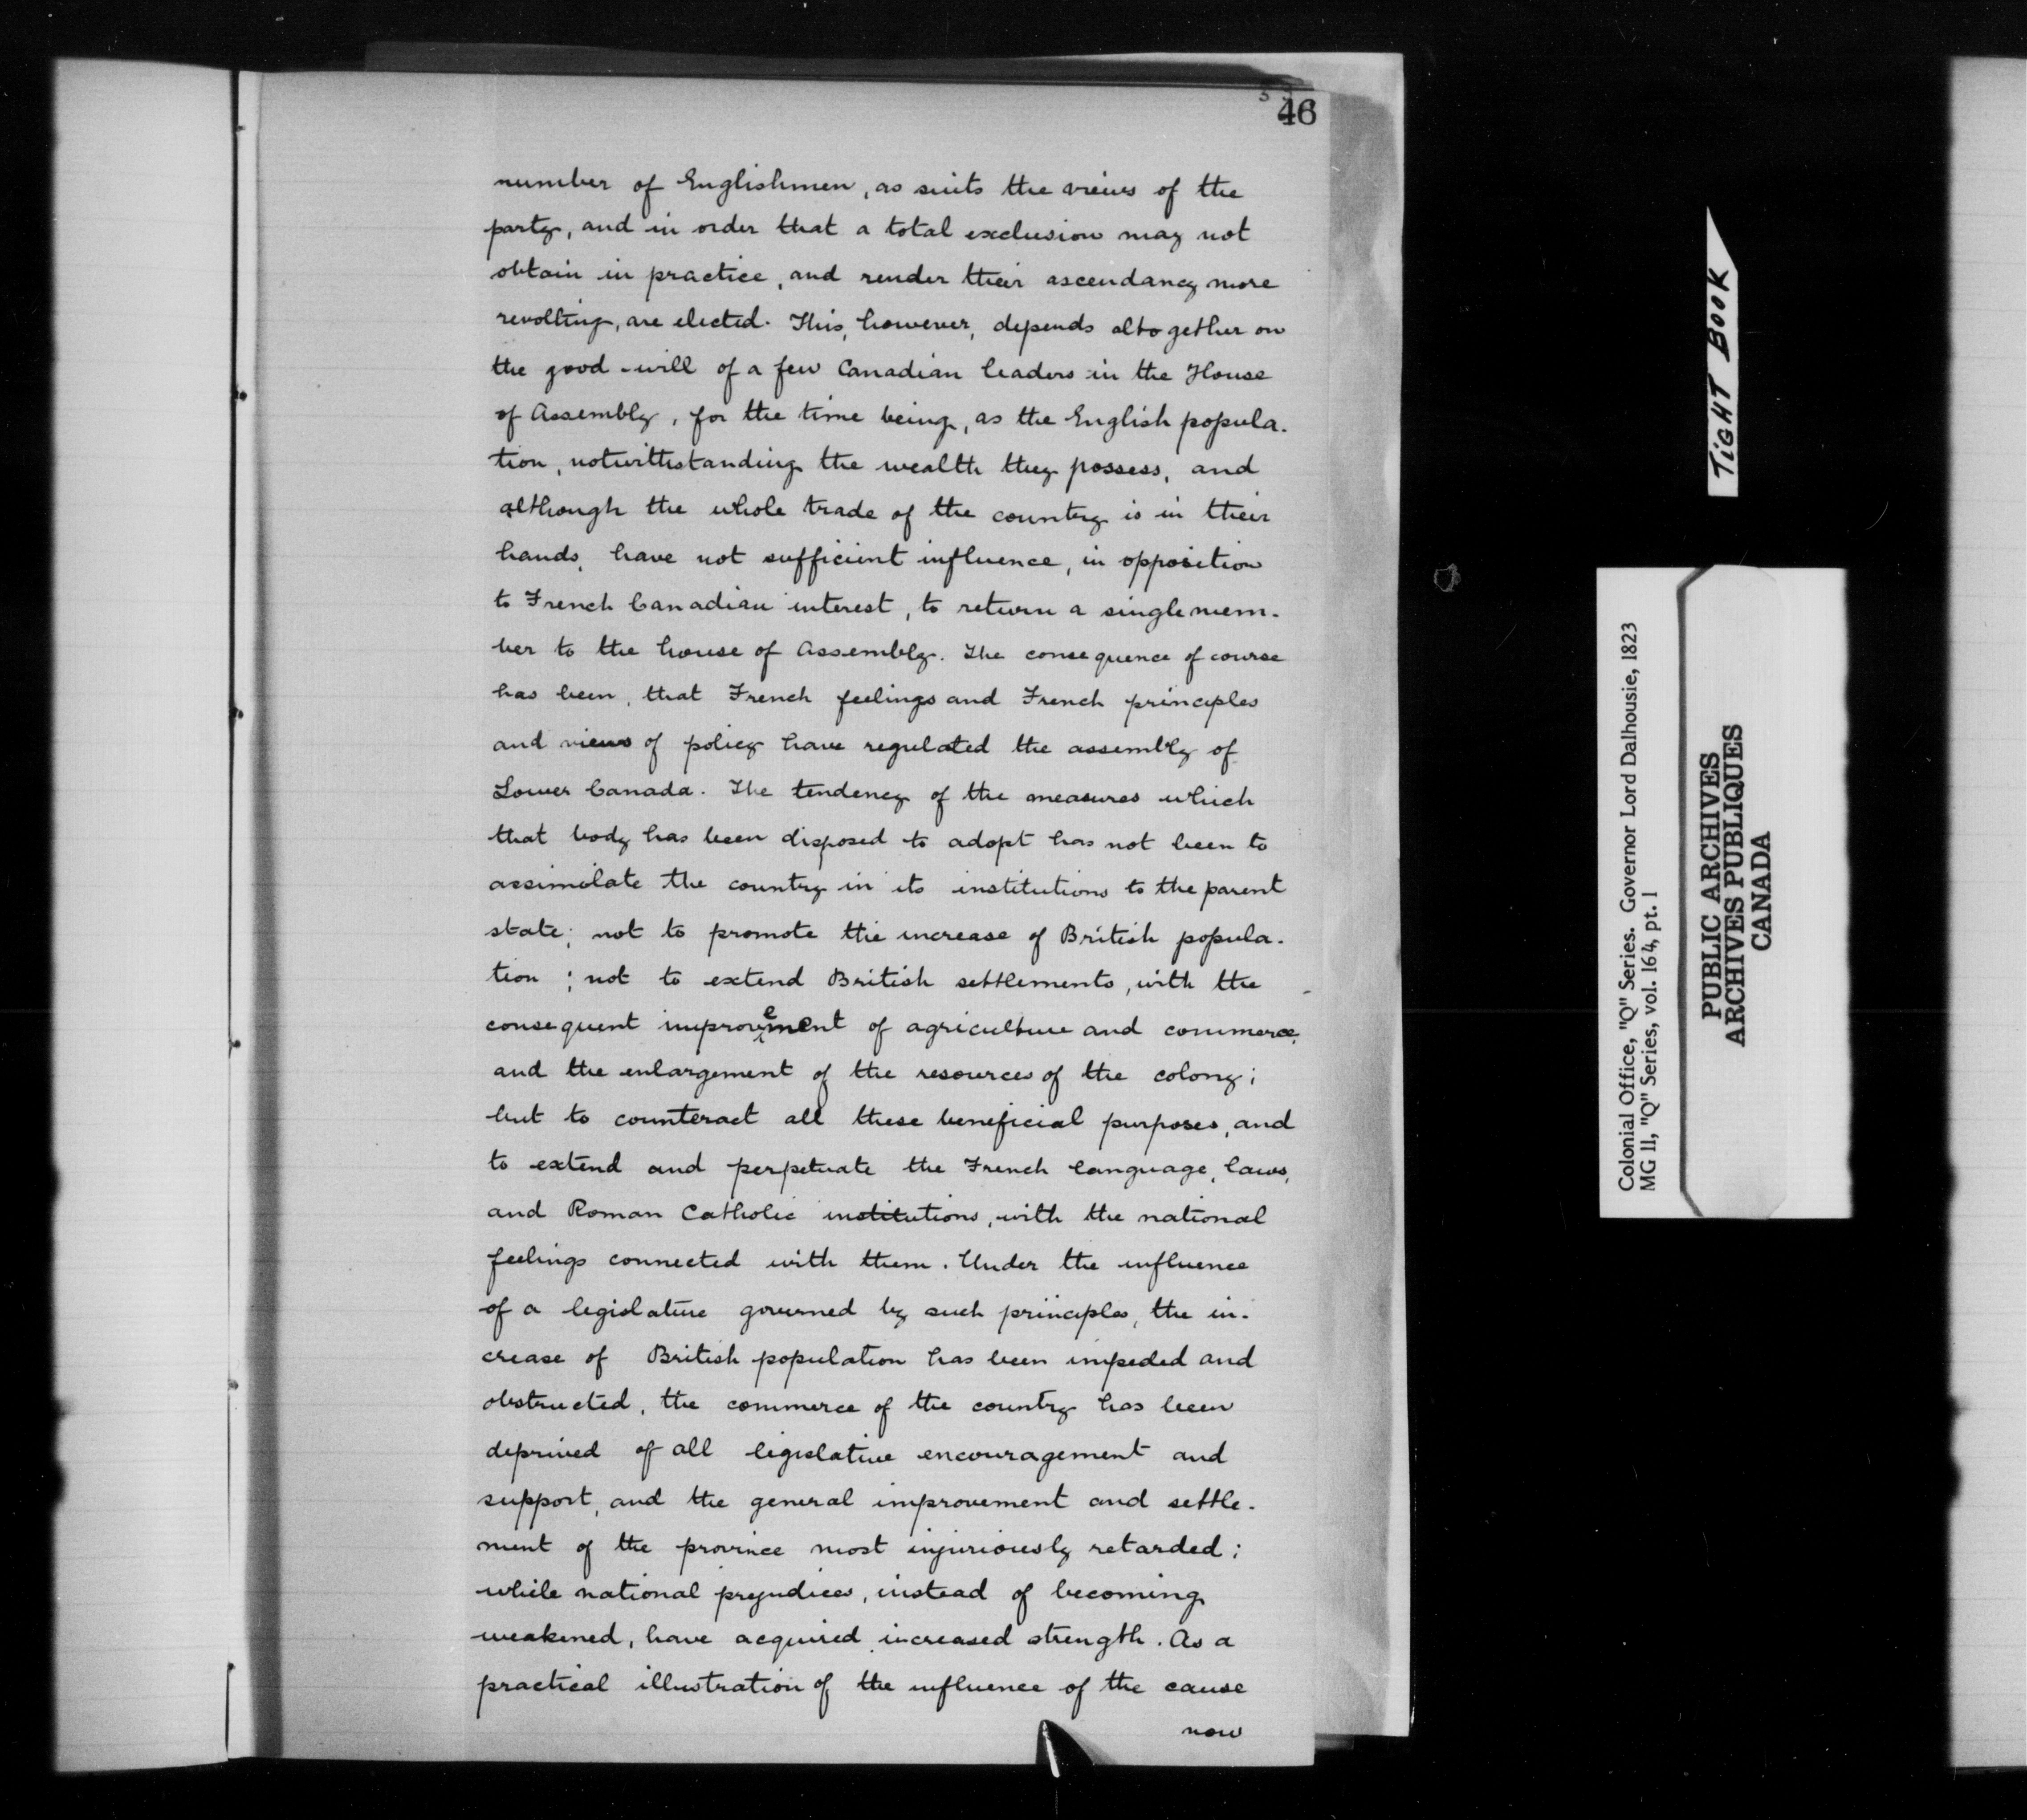 46
number of Englishmen, as suits the views of the
party, and in order that a total exclusion may not
obtain in practice, and render their ascendancy more
revolting, are elected. This, however, depends altogether on
the good-will of a few Canadian leaders in the House
of Assembly, for the time being, as the English popula-
tion, notwithstanding the wealth they possess, and
although the whole trade of the country is in their
hands, have not sufficient influence, in opposition
to French Canadian interest, to return a single mem-
ber to the house of Assembly. The consequence of course
has been, that French feelings and French principles
and views of policy have regulated the assembly of
Lower Canada. The tendency of the measures which
that body has been disposed to adopt has not been to
assimilate the country in its institutions to the parent
state; not to promote the increase of British popula-
tion; not to extend British settlements, with the
consequent improvement of agriculture and commerce,
and the enlargement of the resources of the colony;
but to counteract all these beneficial purposes, and
to extend and perpetuate the French language, laws,
and Roman Catholic institutions, with the national
feelings connected with them. Under the influence
of a legislature governed by such principles, the in-
crease of British population has been impeded and
obstructed, the commerce of the country has been
deprived of all legislative encouragement and
support, and the general improvement and settle-
ment of the province most injuriously retarded;
while national prejudices, instead of becoming
weakened, have acquired increased strength. As a
practical illustration of the influence of the cause
now
TIGHT BOOK
Colonial Office, "Q" Series. Governor Lord Dalhousie, 1823
MG 11, "Q" Series, vol. 164, pt. 1
PUBLIC ARCHIVES
ARCHIVES PUBLIQUES
CANADA